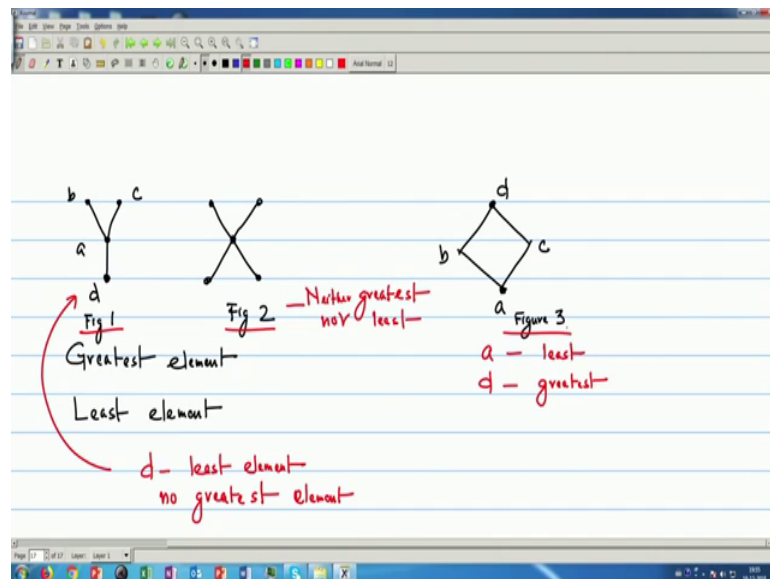 Journal
File Edit View Page Tools Options Help
Arial Normal 12
b c
a
d
Fig 1
Fig 2
– Neither greatest
nor least
d
b c
a
Figure 3
a – least
d – greatest
Greatest element
Least element
d – least element
no greatest element
Page 17 of 17 Layer: Layer 1